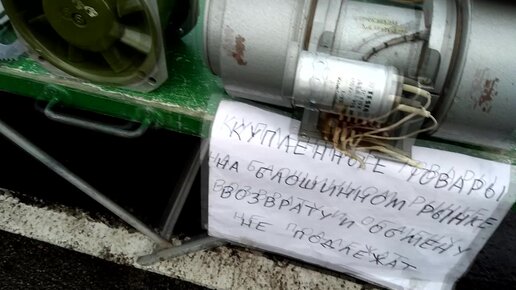 КУПЛЕННЫЕ ТОВАРЫ
НА БЛОШИННОМ РЫНКЕ
ВОЗВРАТУ И ОБМЕНУ
НЕ ПОДЛЕЖАТ